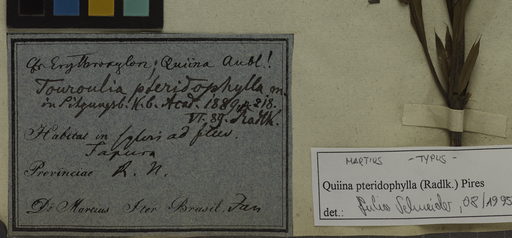 Gr. Erythroxylon; Quiina Aubl!
Touroulia pteridophylla m.
in Sitzungsb. K. b. Acad. 1889 p. 218.
VI. 89. Radlk.
Habitat in sylvis ad fluv.
Japura
Provinciae R. N.
Dr Martius Iter Brasil. Jan
MARTIUS - TYPUS -
Quiina pteridophylla (Radlk.) Pires
det.: Julio Schneider, 08/1995